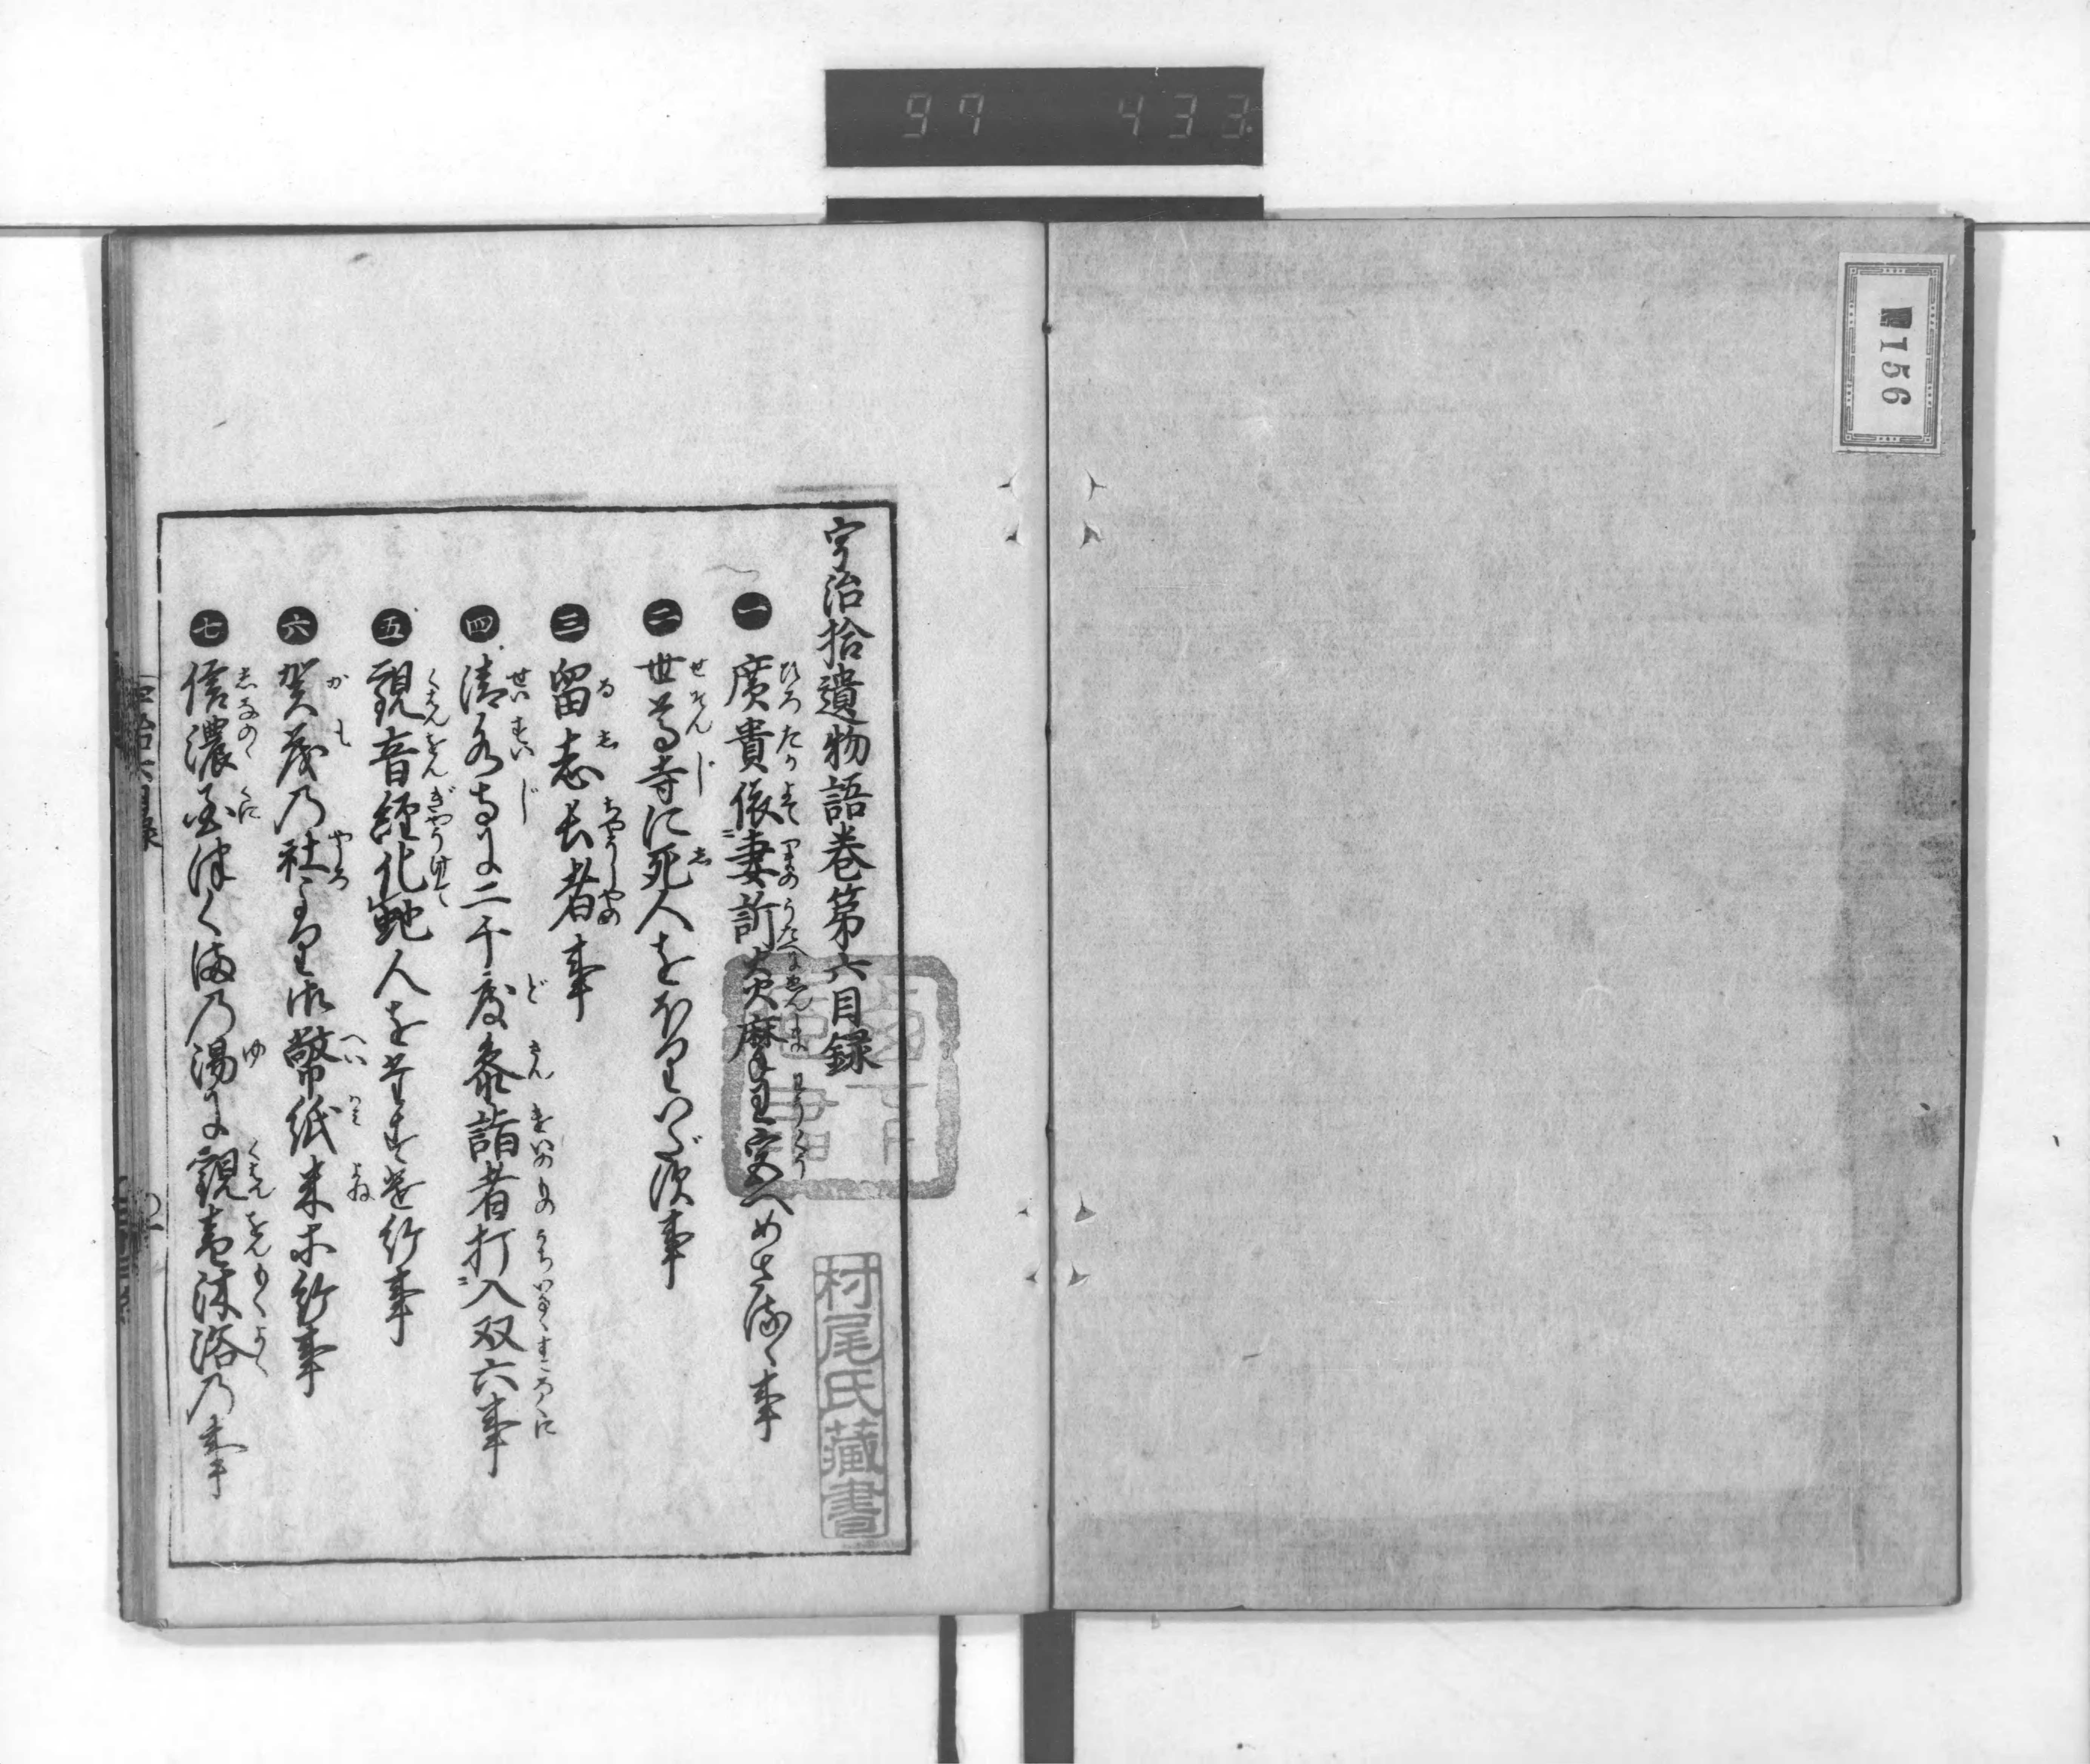 97 433
156
宇治拾遺物語巻第六目録
一 廣貴依妻訴炎麿王宮へめさるゝ事
二 世尊寺に死人をほりいだす事
三 留志長者事
四 清水寺に二千度参詣者打入双六事
五 観音経化虵人をたすけ給事
六 賀茂の社より御幣紙米等給事
七 信濃国つくまの湯に観音沐浴の事
村尾氏藏書